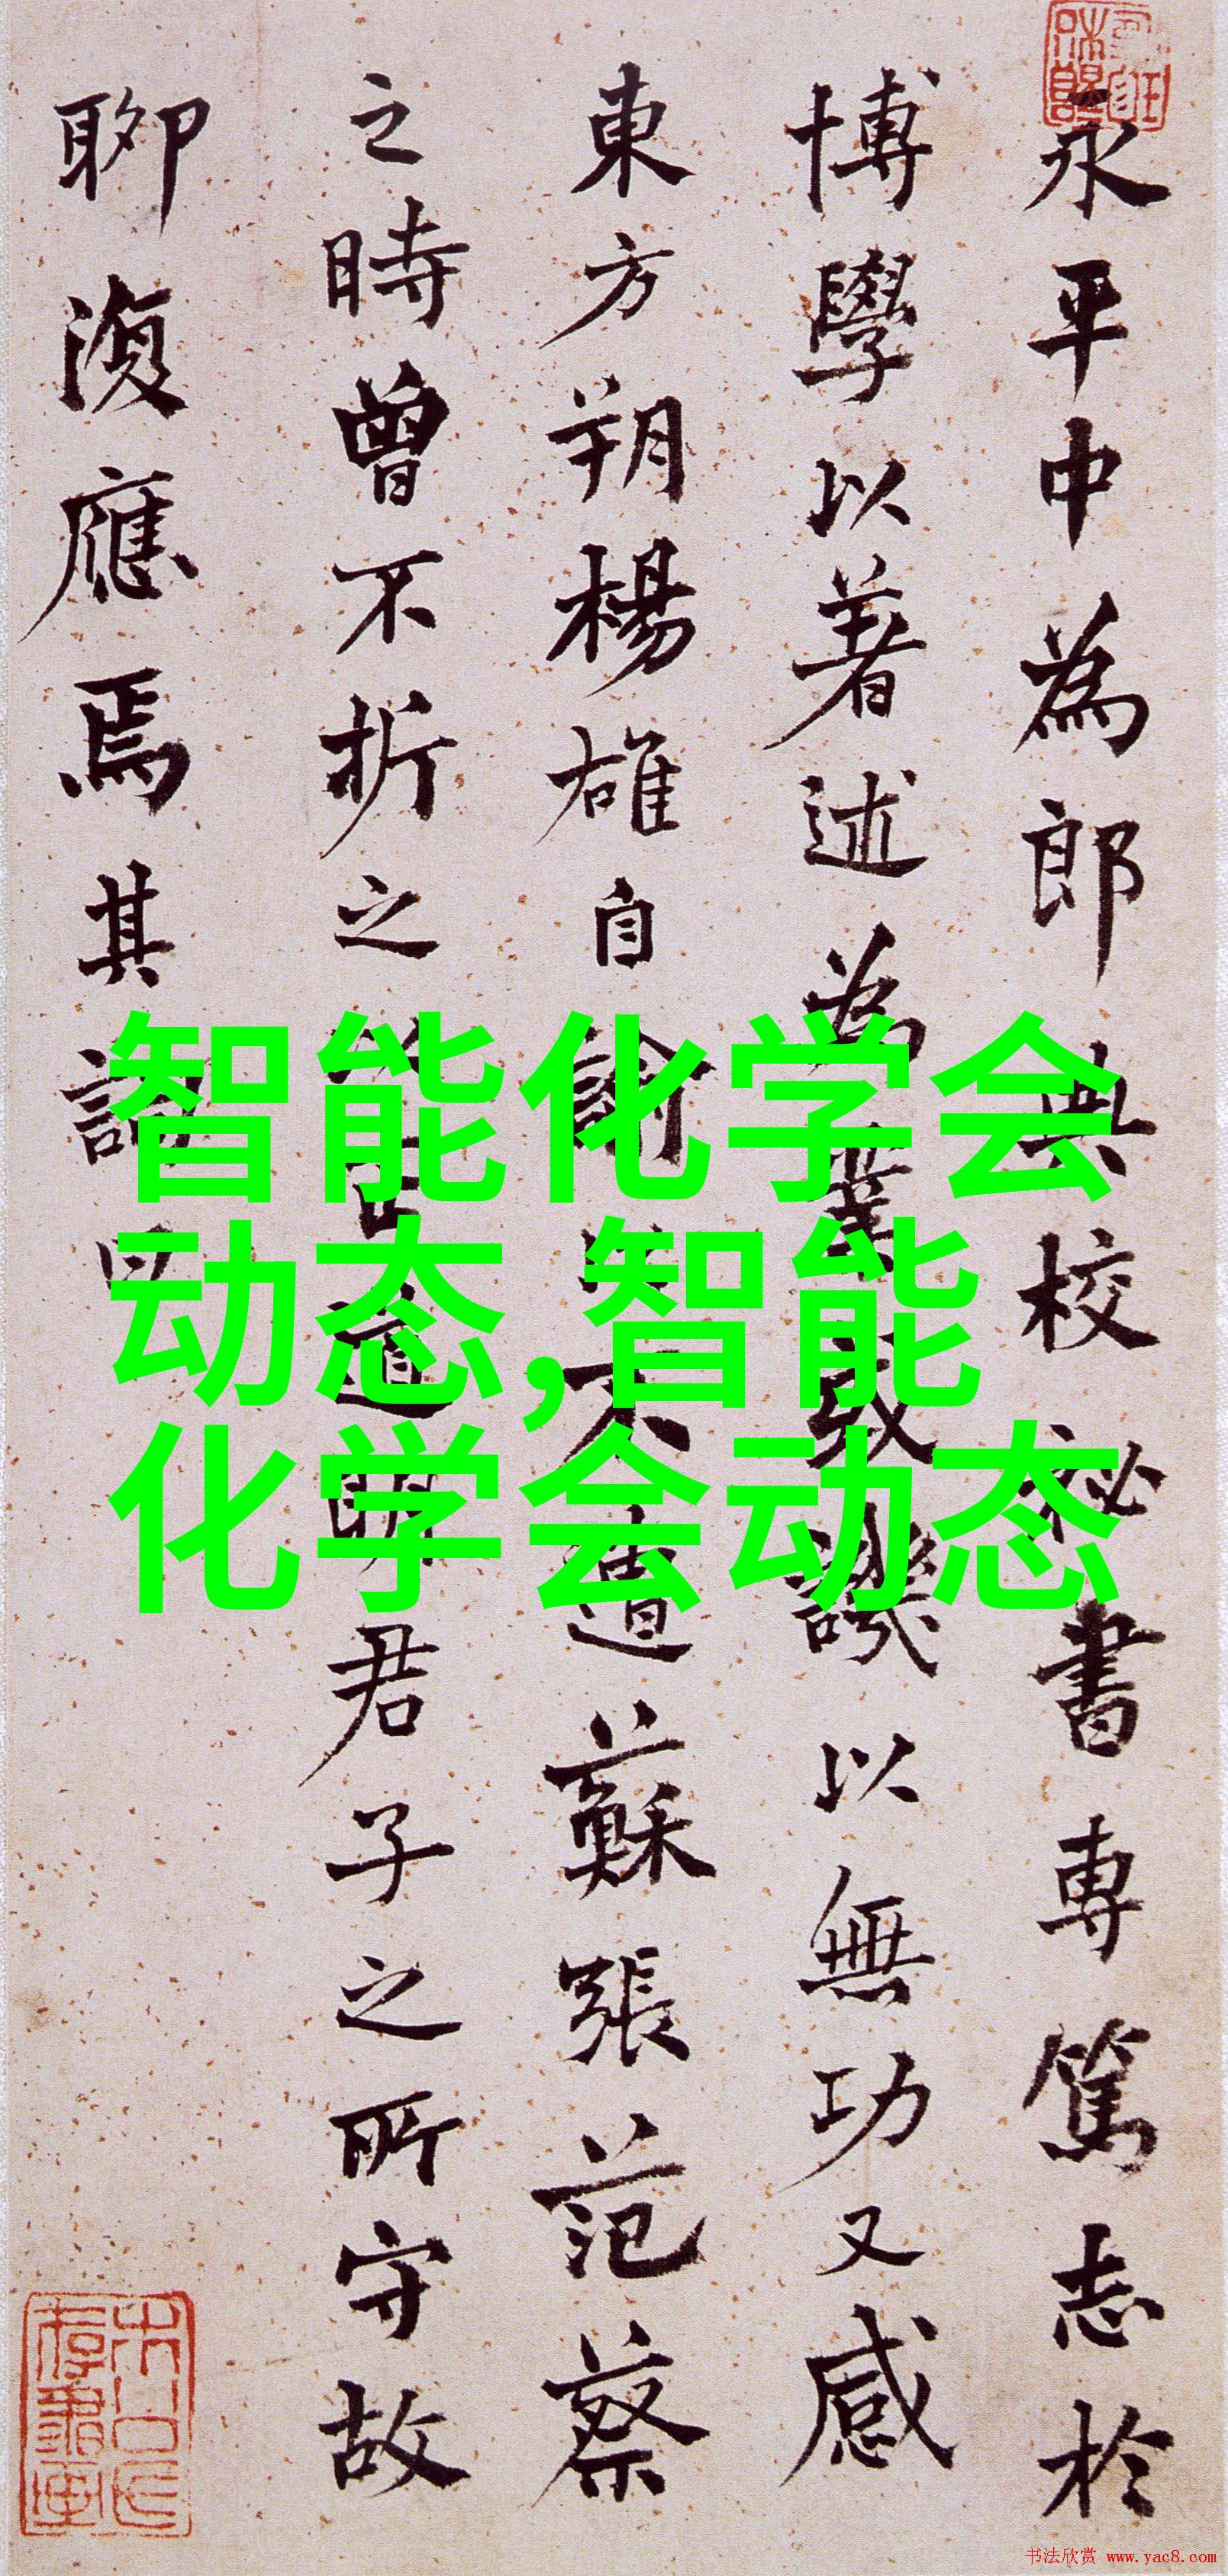 永平中為郎典校祕書專篤志於
博學以著述為業或譏以無功又感
東方朔楊雄自諭以不遭蘇張范蔡
之時曾不折之以正道明君子之所守故
聊復應焉其詞曰
智能化学会
动态,智能
化学会动态
书法欣赏 www.yac8.com